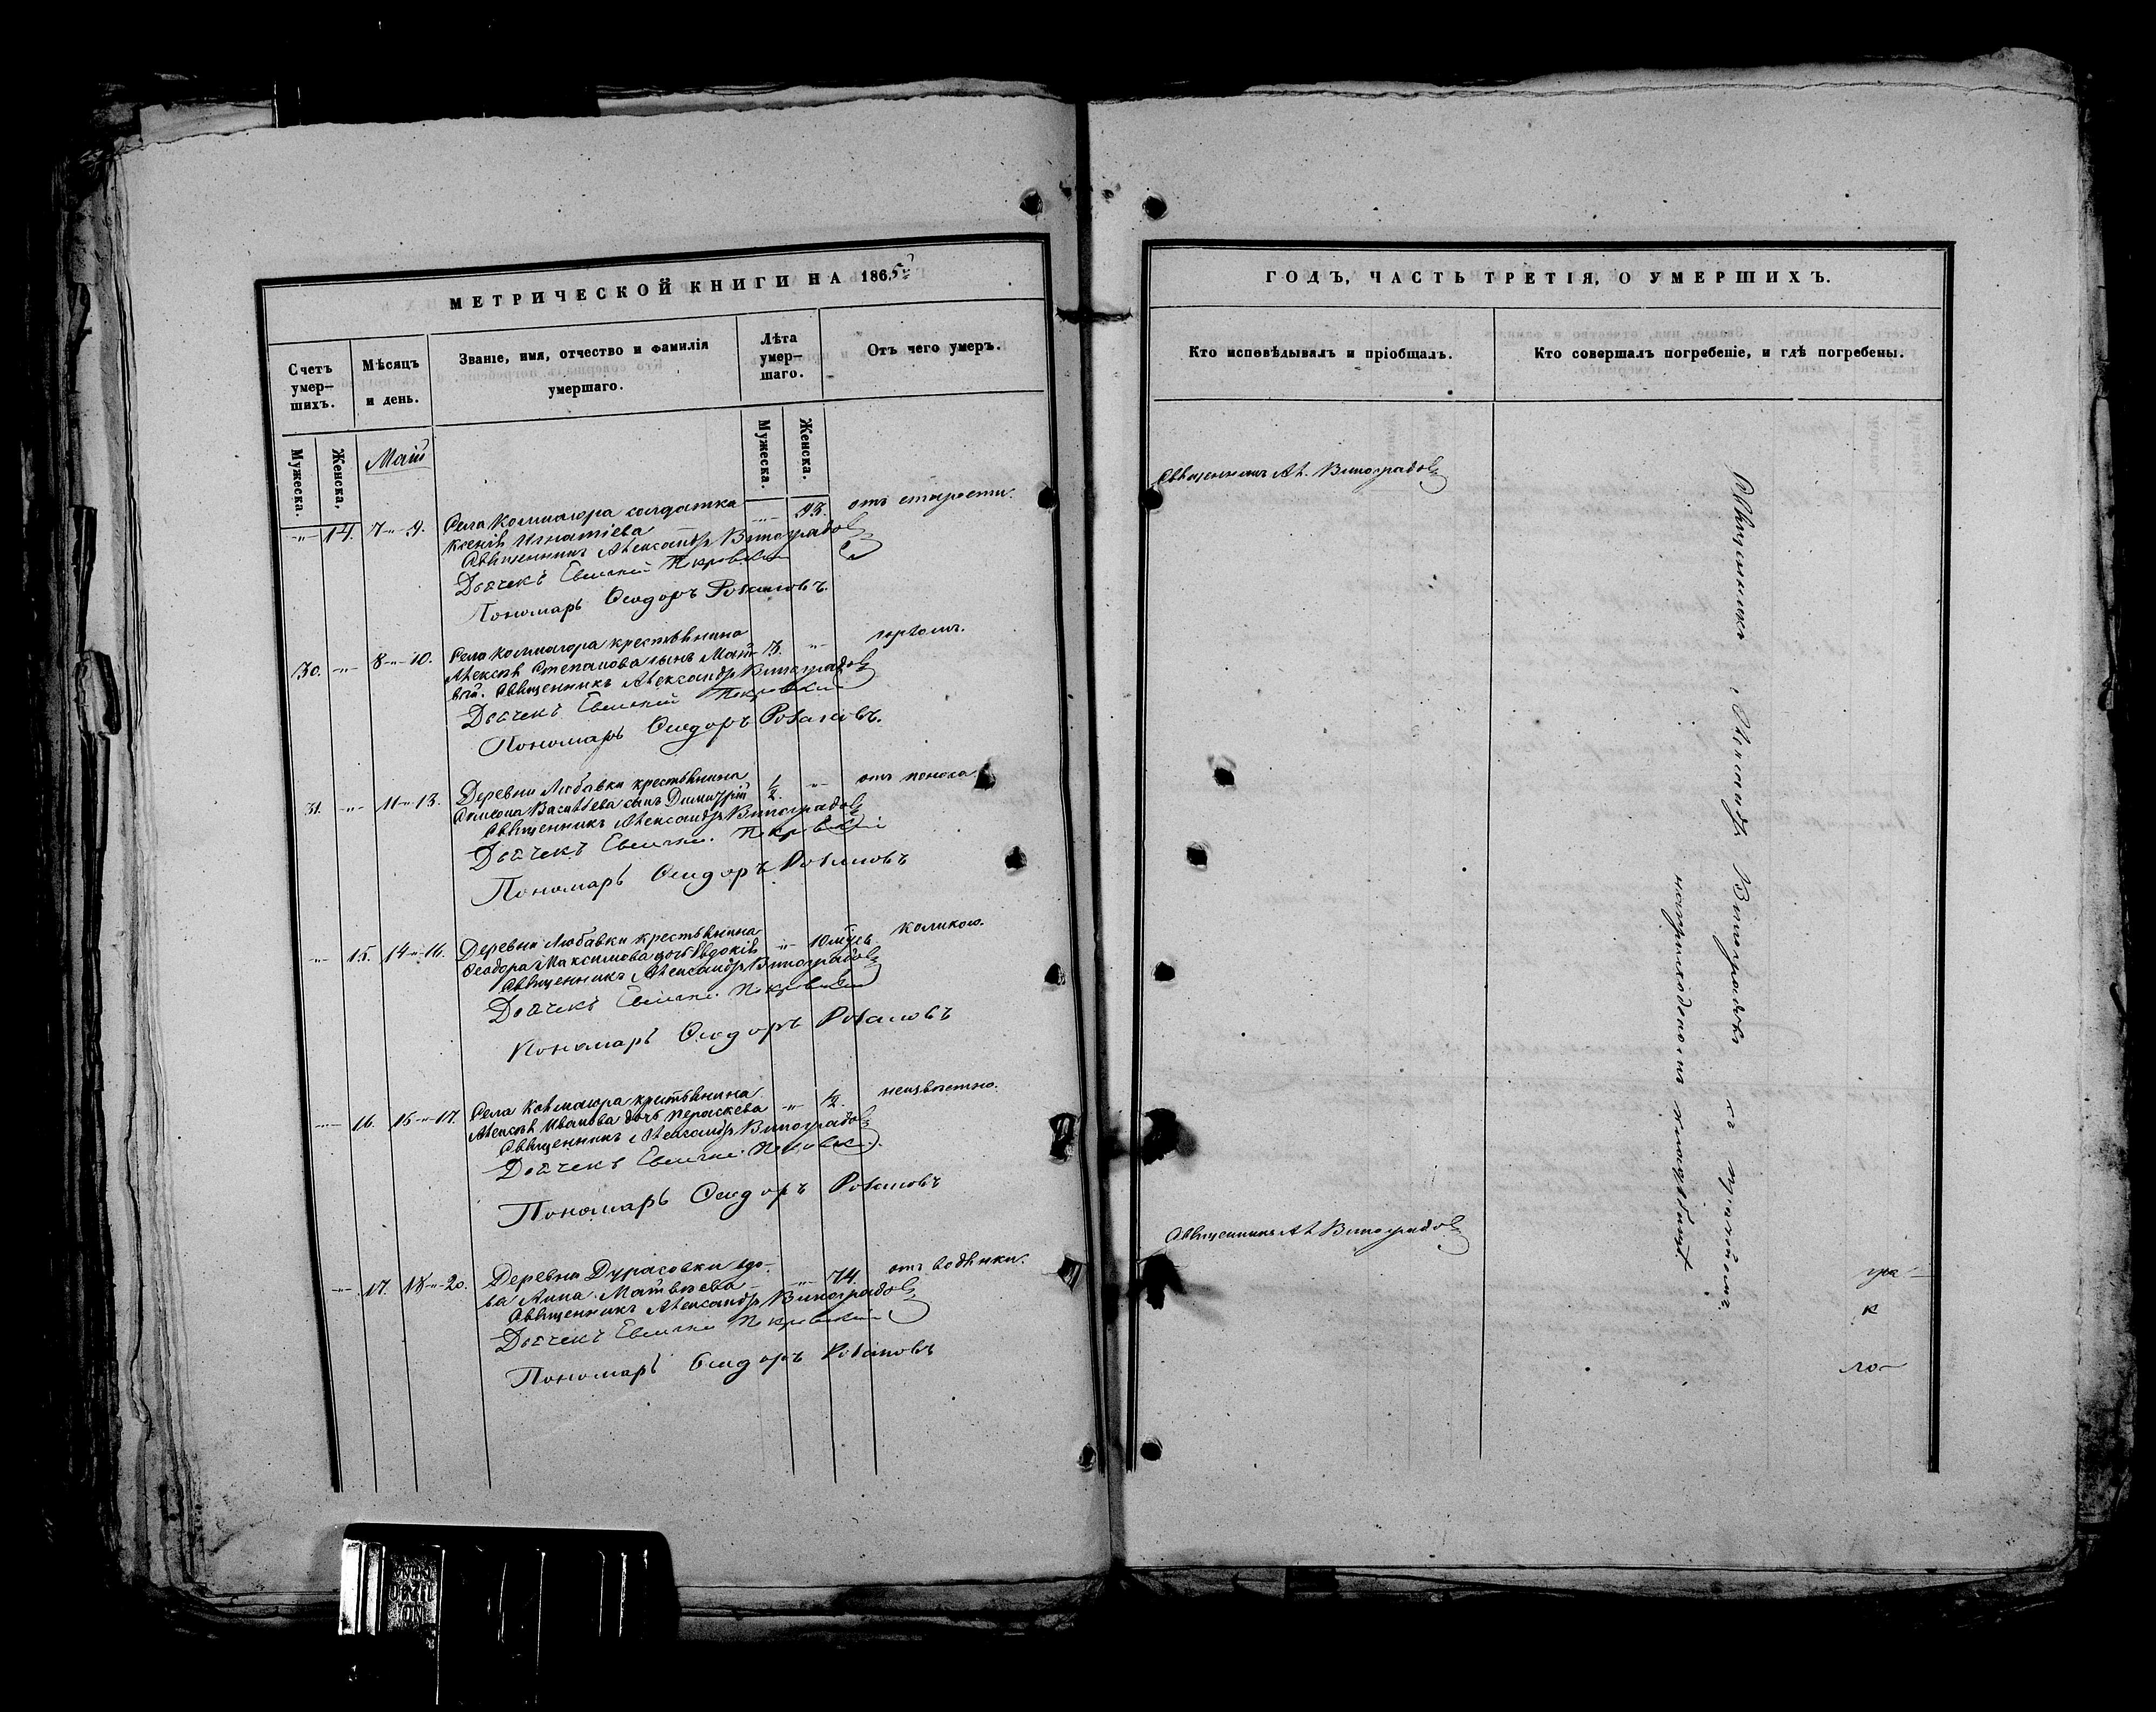 МЕТРИЧЕСКОЙ КНИГИ НА 1865й
Счетъ умер-шихъ.
Мѣсяцъ и день.
Званіе, имя, отчество и фамилія умершаго.
Лѣта умер-шаго.
Отъ чего умеръ.
Мужеска.
Женска.
Май
Мужеска.
Женска.
14. 7-"-9. Села солдатка 93. отъ старости.
Ксенія Игнатіева
Священникъ Александръ Виноградовъ
Дьячекъ Евгеній Покровскій
Пономарь Ѳеодоръ Розановъ.
30. 8-"-10. Села крестьянина 3. горломъ.
Алексѣя Степанова сынъ Мат-
вѣй. Священникъ Александръ Виноградовъ
Дьячекъ Евгеній Покровскій
Пономарь Ѳеодоръ Розановъ.
31. 11-"-13. Деревни Любавки крестьянина 1/2. отъ поноса
Симеона Васильева сынъ Димитрій
Священникъ Александръ Виноградовъ
Дьячекъ Евгеній Покровскій
Пономарь Ѳеодоръ Розановъ
15. 14-"-16. Деревни Любавки крестьянина 10 мѣсъ. коликою.
Ѳеодора Максимова дочь Евдокія
Священникъ Александръ Виноградовъ
Дьячекъ Евгеній Покровскій
Пономарь Ѳеодоръ Розановъ
16. 15-"-17. Села крестьянина 1/2. неизвѣстно.
Алексѣя Иванова дочь Параскева
Священникъ Александръ Виноградовъ
Дьячекъ Евгеній Покровскій.
Пономарь Ѳеодоръ Розановъ
17. 18-"-20. Деревни Дурасовки вдо-
ва Анна Матвѣева 74. отъ водянки.
Священникъ Александръ Виноградовъ
Дьячекъ Евгеній Покровскій
Пономарь Ѳеодоръ Розановъ
ГОДЪ, ЧАСТЬ ТРЕТІЯ, О УМЕРШИХЪ.
Кто исповѣдывалъ и пріобщалъ.
Кто совершалъ погребеніе, и гдѣ погребены.
Священникъ Ал. Виноградовъ
Священникъ Александръ Виноградовъ съ причтомъ
на приходскомъ кладбищѣ.
Священникъ Ал. Виноградовъ
гра-
к
ло-